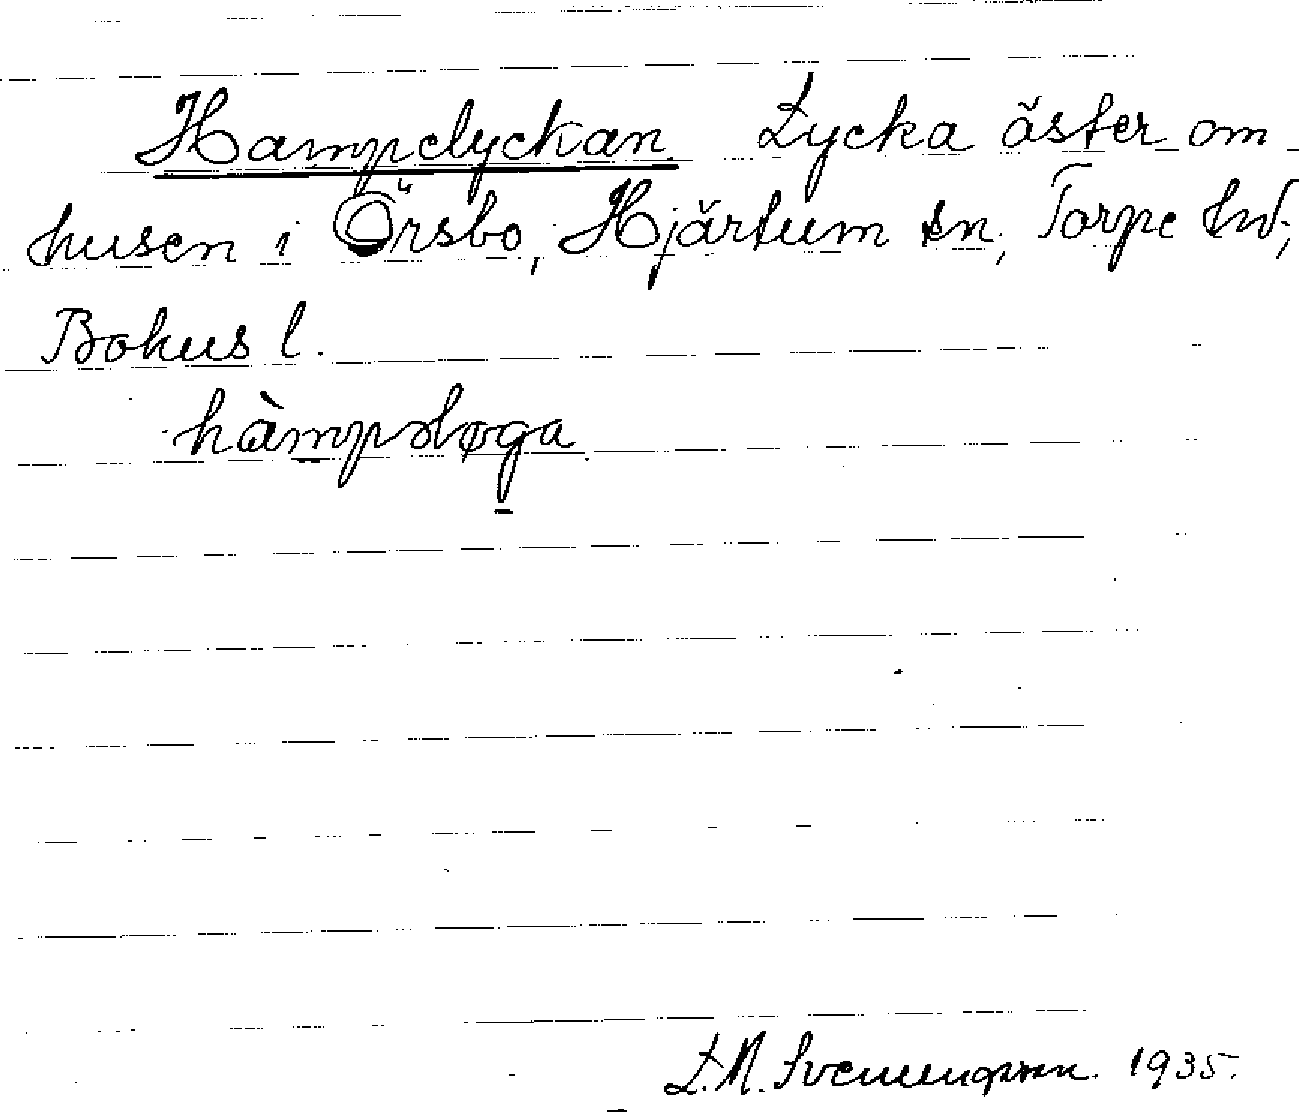 Hampelyckan Lycka öster om
husen i Örsbo, Hjärtum sn, Torpe hd,
Bohus l.
hàmpəløga
L.M. Svenungsson. 1935.